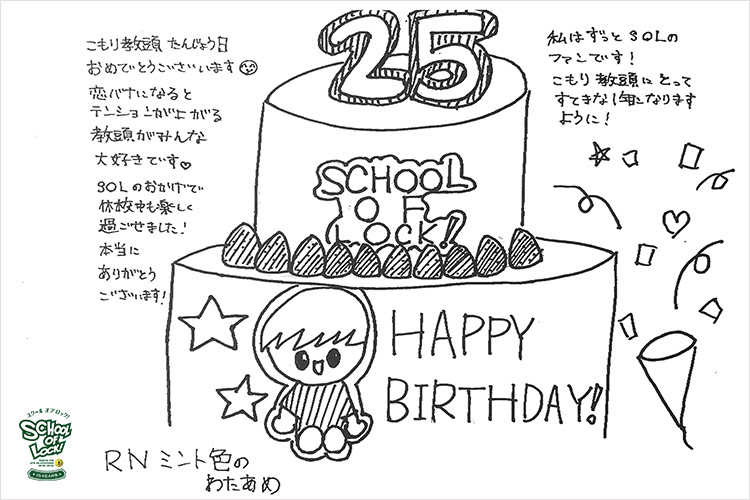 こもり教頭 たんじょう日
おめでとうございます
恋バナになると
テンションが上がる
教頭がみんな
大好きです♡
SOLのおかげで
休校中も楽しく
過ごせました!
本当に
ありがとう
ございます!
25
SCHOOL
OF
LOCK!
HAPPY
BIRTHDAY!
私はずっとSOLの
ファンです!
こもり教頭にとって
すてきな1年になります
ように!
RN ミント色の
わたあめ
スクール オブ ロック!
SCHOOL
OF
LOCK!